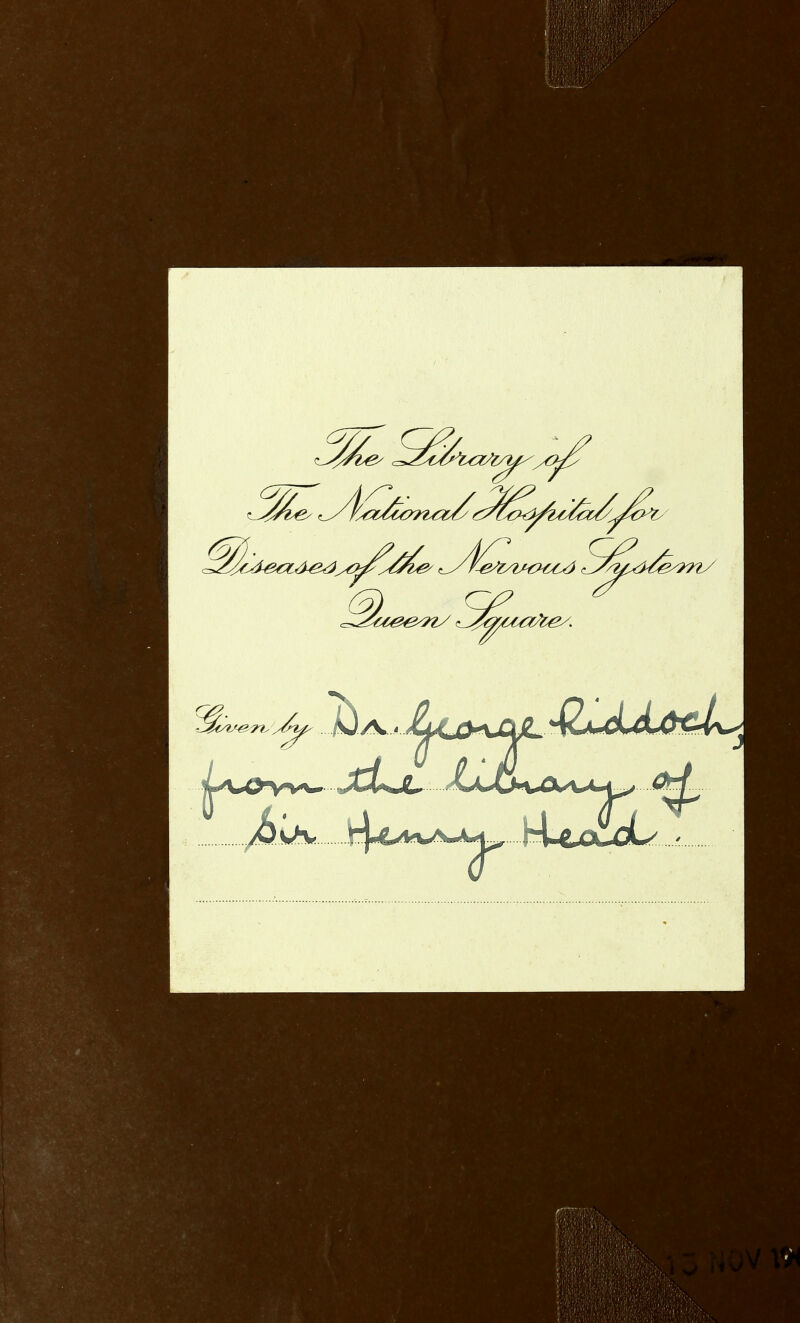 The Library of
The National Hospital for
Diseases of the Nervous System
Queen Square.
Given by Dr. George Riddoch,
from the library of
Sir Henry Head.
13 NOV